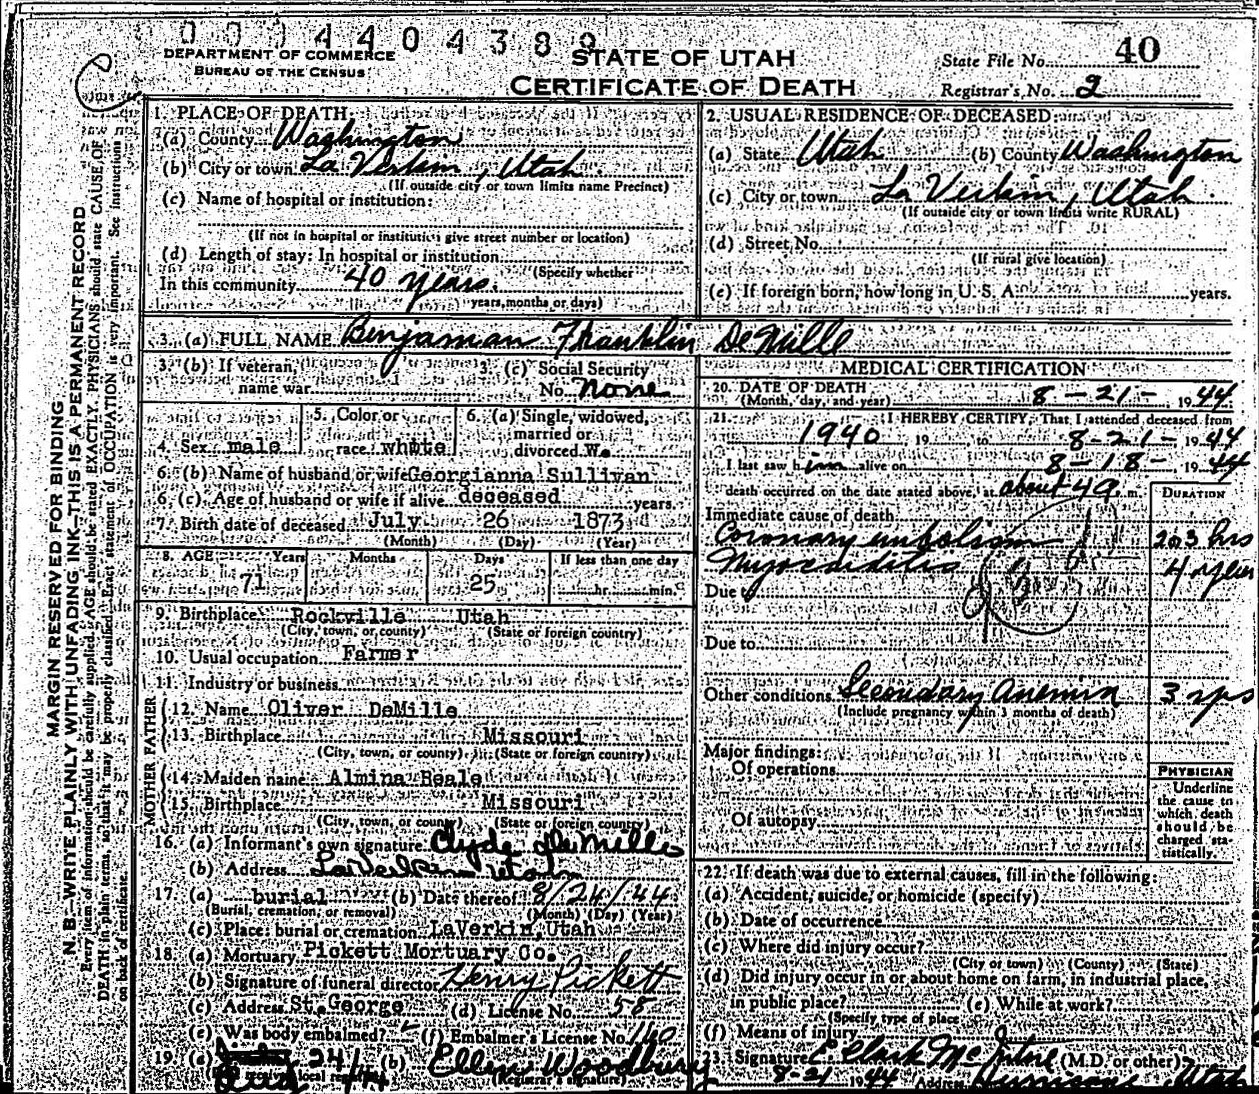 0 0 1 4 4 0 4 3 8 9
DEPARTMENT OF COMMERCE
BUREAU OF THE CENSUS
STATE OF UTAH
CERTIFICATE OF DEATH
State File No. 40
Registrar's No. 2
MARGIN RESERVED FOR BINDING
N. B.—WRITE PLAINLY WITH UNFADING INK—THIS IS A PERMANENT RECORD
Every item of information should be carefully supplied. AGE should be stated EXACTLY. PHYSICIANS should state CAUSE OF
DEATH in plain terms, so that it may be properly classified. Exact statement of OCCUPATION is very important. See instructions
on back of certificate.
1. PLACE OF DEATH
(a) County Washington
(b) City or town La Verkin, Utah.
(If outside city or town limits name Precinct)
(c) Name of hospital or institution:
(If not in hospital or institution give street number or location)
(d) Length of stay: In hospital or institution
(Specify whether
In this community 40 years.
years, months or days)
2. USUAL RESIDENCE OF DECEASED:
(a) State Utah (b) County Washington
(c) City or town La Verkin, Utah.
(If outside city or town limits write RURAL)
(d) Street No.
(If rural give location)
(e) If foreign born, how long in U. S. A. years.
3. (a) FULL NAME Benjaman Franklin DeMille
3. (b) If veteran,
name war
3. (c) Social Security
No. None
4. Sex male
5. Color or
race white
6. (a) Single, widowed,
married or
divorced W.
6. (b) Name of husband or wife Georgianna Sullivan
6. (c) Age of husband or wife if alive deceased years.
7. Birth date of deceased July 26 1873
(Month) (Day) (Year)
8. AGE Years Months Days If less than one day
71 25 hr. min.
9. Birthplace Rockville Utah
(City, town, or county) (State or foreign country)
10. Usual occupation Farmer
11. Industry or business
FATHER
12. Name Oliver DeMille
13. Birthplace Missouri
(City, town, or county) (State or foreign country)
MOTHER
14. Maiden name Almina Beale
15. Birthplace Missouri
(City, town, or county) (State or foreign country)
16. (a) Informant's own signature Clyde DeMille
(b) Address LaVerkin Utah
17. (a) burial (b) Date thereof 8/24/44
(Burial, cremation, or removal) (Month) (Day) (Year)
(c) Place: burial or cremation LaVerkin, Utah
18. (a) Mortuary Pickett Mortuary Co.
(b) Signature of funeral director Henry Pickett
(c) Address St. George (d) License No. 58
(e) Was body embalmed? (f) Embalmer's License No. 140
19. (a) Aug 24/44 (b) Ellen Woodbury
(Registrar's signature)
MEDICAL CERTIFICATION
20. DATE OF DEATH
(Month, day, and year) 8 - 21 - 1944
21. I HEREBY CERTIFY, That I attended deceased from
1940, 19 to 8-21- 1944
I last saw him alive on 8-18- 1944
death occurred on the date stated above, at about 4 a. m.
DURATION
Immediate cause of death
Coronary embolism 2 or 3 hrs
Myocarditis 4 years
Due to
Due to
Other conditions Secondary Anemia 3 yrs
(Include pregnancy within 3 months of death)
Major findings:
Of operations
Of autopsy
PHYSICIAN
Underline
the cause to
which death
should be
charged sta-
tistically.
22. If death was due to external causes, fill in the following:
(a) Accident, suicide, or homicide (specify)
(b) Date of occurrence
(c) Where did injury occur?
(City or town) (County) (State)
(d) Did injury occur in or about home on farm, in industrial place,
in public place? (e) While at work?
(Specify type of place
(f) Means of injury
23. Signature E Clark McIntire (M.D. or other)
8-21 1944 Address Hurricane, Utah